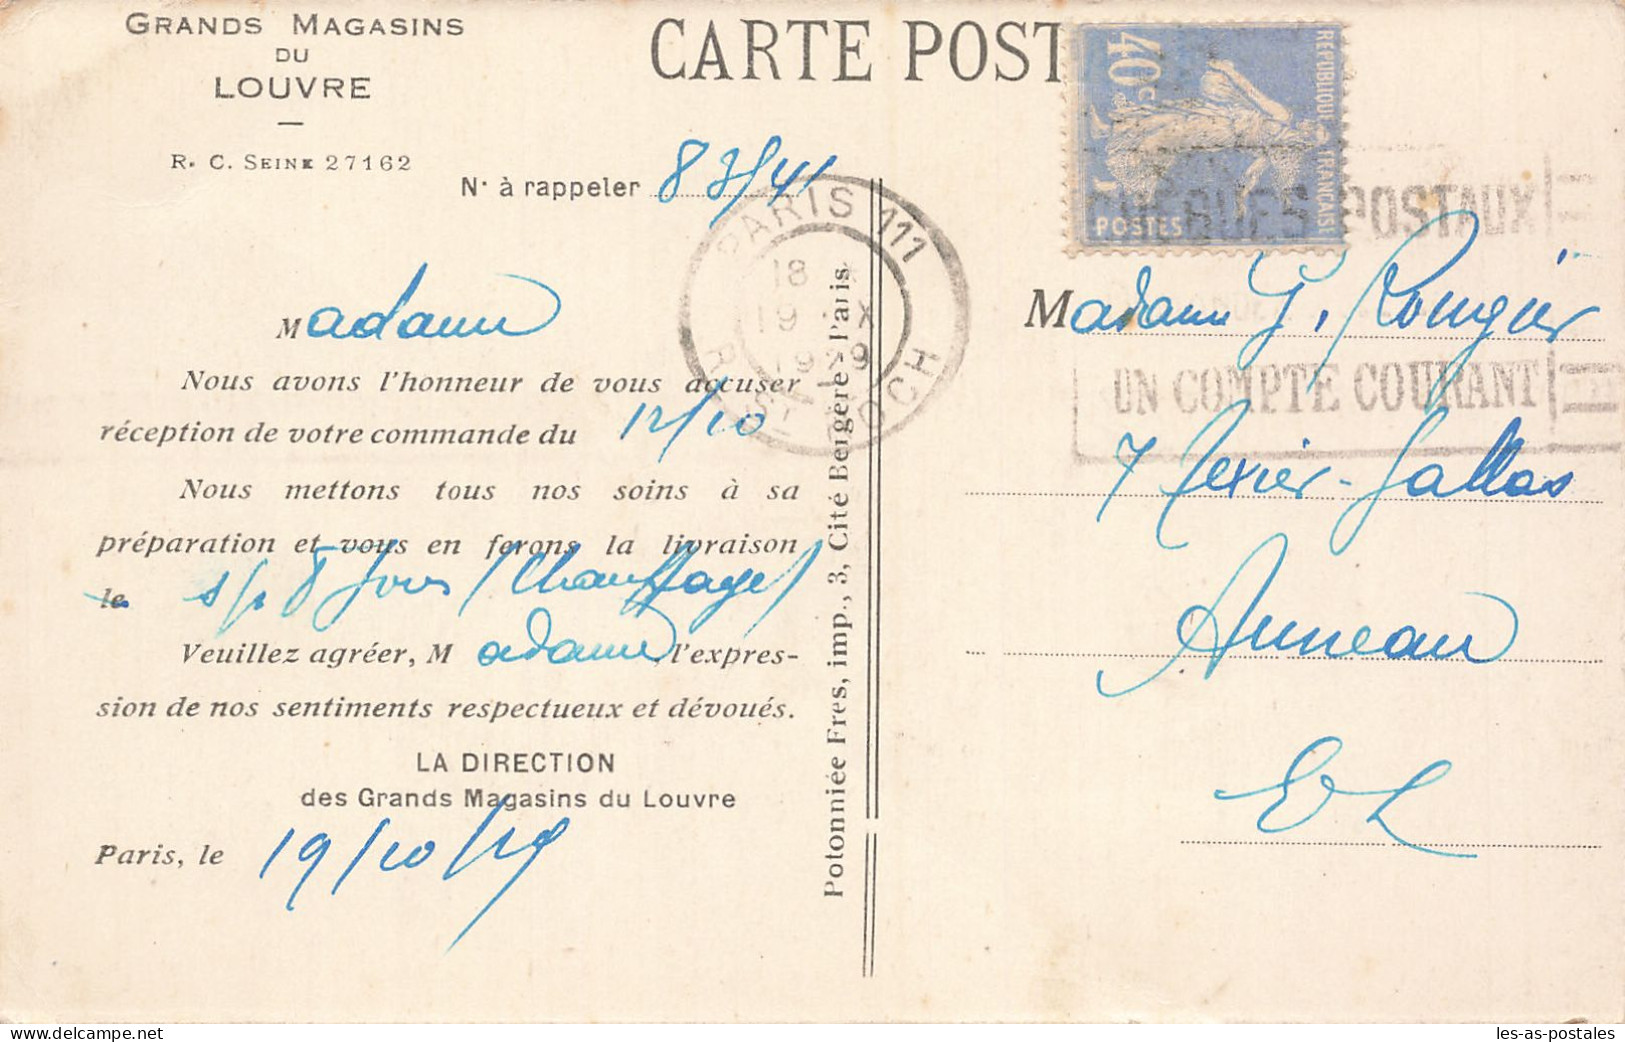 GRANDS MAGASINS
DU
LOUVRE
R. C. SEINE 27162
N° à rappeler 83/41
Madame
Nous avons l'honneur de vous accuser
réception de votre commande du 12/10
Nous mettons tous nos soins à sa
préparation et vous en ferons la livraison
le s/p 8 jours (Chauffage)
Veuillez agréer, Madame, l'expres-
sion de nos sentiments respectueux et dévoués.
LA DIRECTION
des Grands Magasins du Louvre
Paris, le 19/10/29
Potonniée Fres, imp., 3, Cité Bergère - Paris
CARTE POST
40c
REPUBLIQUE FRANÇAISE
POSTES
PARIS 111
18
19 X
1929
R. ST ROCH
CHEQUES POSTAUX
UN COMPTE COURANT
Madame G. Rougier
7 Texier-Gallas
Auneau
E L
les-as-postales